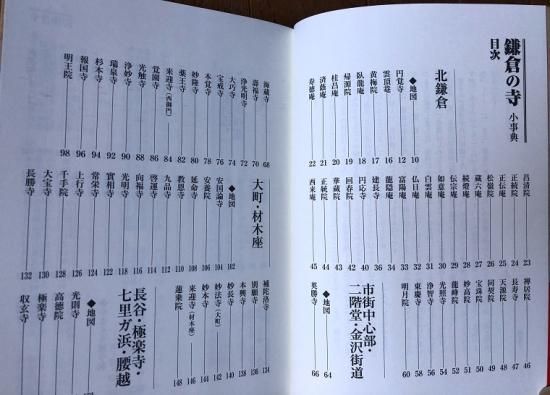 鎌倉の寺 小事典
目次
北鎌倉
◆地図 10
円覚寺 12
雲頂庵 16
黄梅院 17
臥龍庵 18
帰源院 19
桂昌庵 20
済蔭庵 21
寿徳庵 22
昌清院 23
正続院 24
正伝庵 25
松嶺院 26
蔵六庵 27
続燈庵 28
伝宗庵 29
如意庵 30
白雲庵 31
仏日庵 32
富陽庵 33
龍隠庵 34
建長寺 36
円応寺 40
回春院 42
華蔵院 43
正統院 44
西来庵 45
禅居院 46
長寿寺 47
天源院 48
同契院 49
宝珠院 50
妙高院 51
龍峰院 52
光照寺
浄智寺
東慶寺 58
明月院 60
市街中心部・
二階堂・金沢街道
◆地図 64
英勝寺 66
海蔵寺 68
壽福寺 70
浄光明寺 72
大巧寺 74
宝戒寺 76
本覚寺 78
妙隆寺 80
薬王寺 82
来迎寺（西御門） 84
覚園寺 86
光触寺 88
浄妙寺 90
瑞泉寺 92
杉本寺 94
報国寺 96
明王院 98
大町・材木座
◆地図 102
安国論寺 104
安養院 106
延命寺 108
教恩寺 110
九品寺 112
啓運寺 114
向福寺 116
光明寺 118
實相寺 122
常栄寺 124
上行寺 126
千手院 128
大宝寺 130
長勝寺 132
補陀洛寺 134
別願寺 136
本興寺 138
妙長寺 140
妙法寺（大町） 142
妙本寺 144
来迎寺（材木座） 146
蓮乗院 148
長谷・極楽寺・
七里ガ浜・腰越
◆地図
光則寺
高徳院
極楽寺
収玄寺